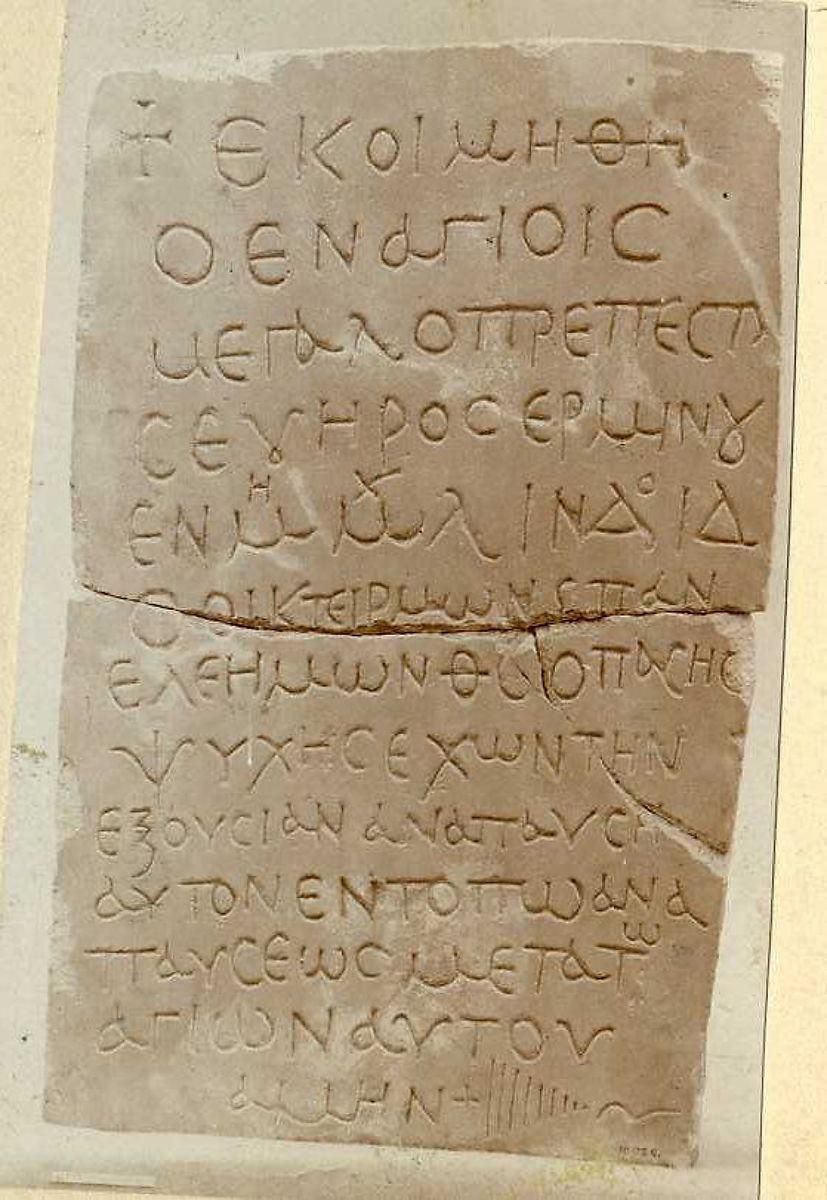 ☩ ΕΚΟΙΜΗΘΗ
Ο ΕΝ ΑΓΙΟΙC
ΜΕΓΑΛΟΠΡΕΠΕCΤ
CΕΥΗΡΟC ΕΡΜΗΝΥ
ΕΝ Μ͞Η ΜΧ Λ ΙΝΔΟ ΙΔ
Ο ΟΙΚΤΕΙΡΜΩΝ S ΠΑΝ
ΕΛΕΗΜΩΝ ΘC Ο ΠΑCΗC
ΨΥΧΗC ΕΧΩΝ ΤΗΝ
ΕΞΟΥCΙΑΝ ΑΝΑΠΑΥCΗ
ΑΥΤΟΝ ΕΝ ΤΟΠΩ ΑΝΑ
ΠΑΥCΕΩC ΜΕΤΑ ΤΩ
ΑΓΙΩΝ ΑΥΤΟΥ
ΑΜΗΝ +